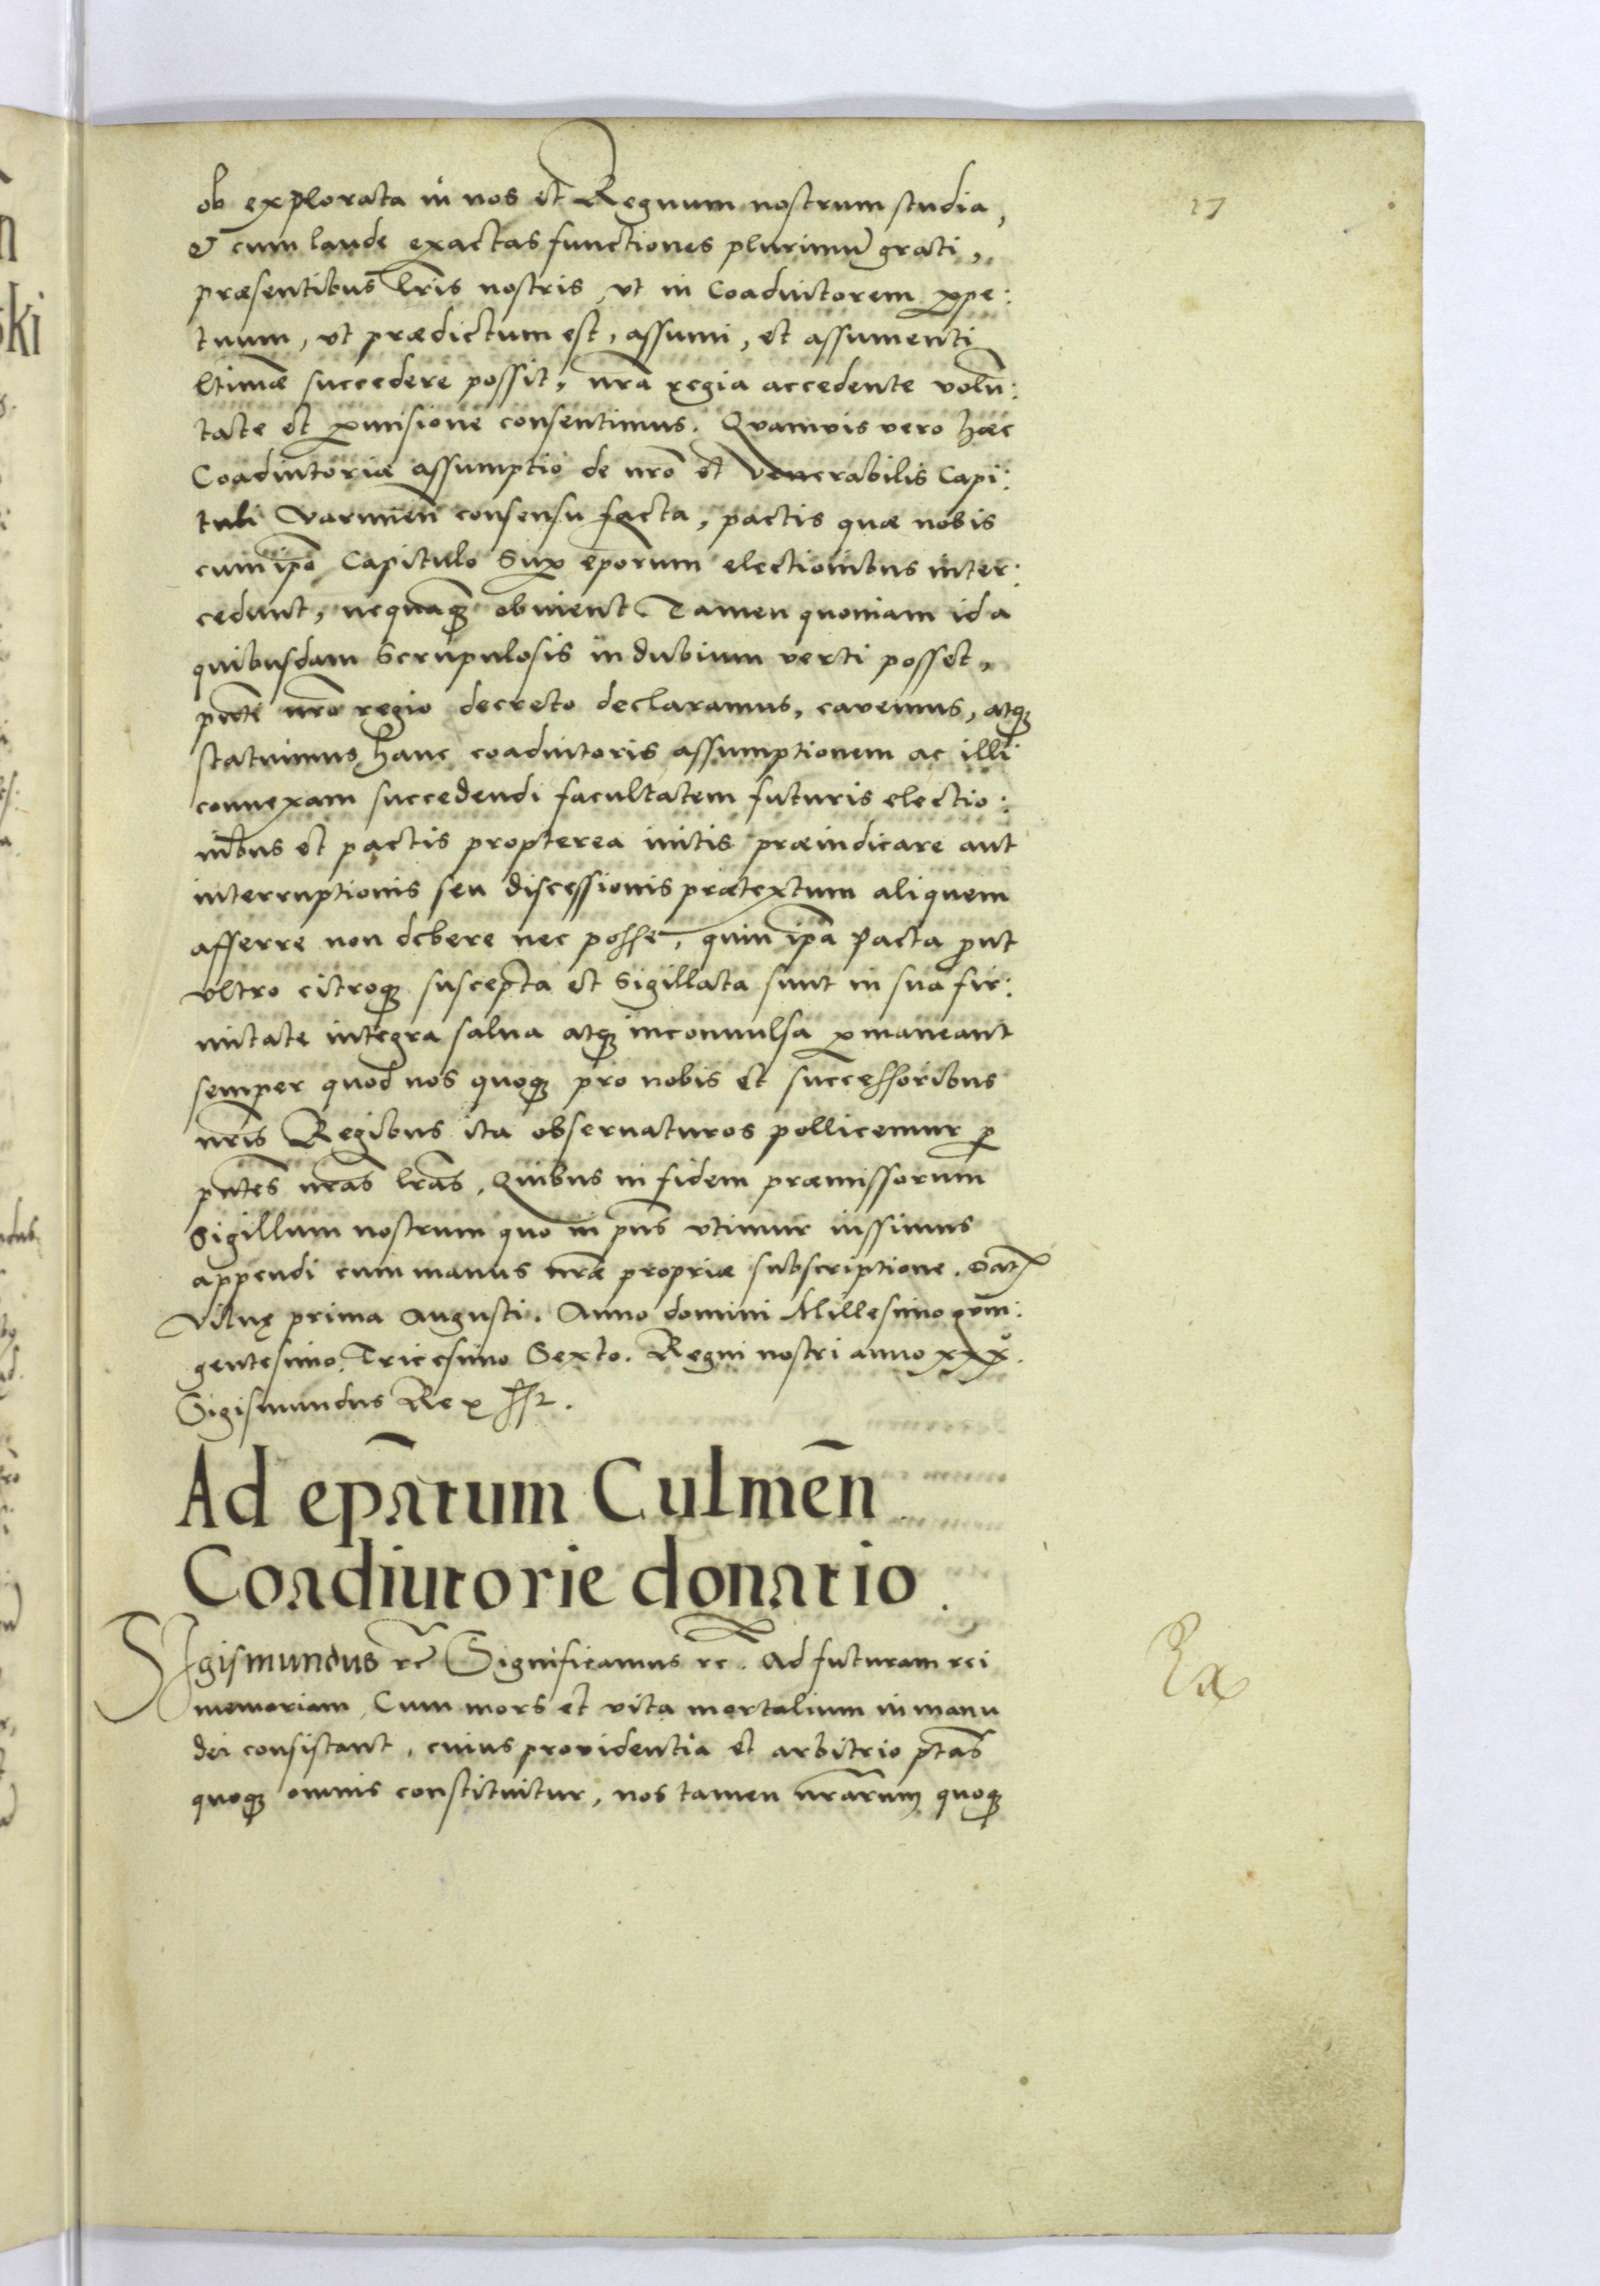 27
ob explorata in nos et Regnum nostrum studia,
& cum laude exactas functiones plurimū grati,
præsentibus lr̄is nostris, vt in Coadiutorem ꝑpe:
tuum, vt prædictum est, assumi, et assumenti
ltimæ succedere possit, nr̄a regia accedente volū:
tate et ꝑmisione consentimus. Quamuis vero hæc
Coadiutoriæ assumptio de nr̄o et Venerabilis Capi:
tuli Varmien̄ consensu facta, pactis quæ nobis
cum ip̄o Capitulo Suꝑ ep̄orum electionibus inter:
cedunt, nequaqȝ obuient Tamen quoniam id a
quibusdam Scrupulosis in dubium verti posset,
pn̄ti nr̄o regio decreto declaramus, cauemus, atqȝ
statuimus hanc coadiutoris assumptionem ac illi
connexam succedendi facultatem futuris electio:
nibus et pactis propterea initis præiudicare aut
interruptionis seu discessionis prætextum aliquem
afferre non debere nec posse, quin ip̄a Pacta prout
vltro citroqȝ suscepta et Sigillata sunt in sua fir:
mitate integra salua atqȝ inconuulsa ꝑmaneant
semper quod nos quoqȝ pro nobis et successoribus
nr̄is Regibus ita obseruaturos pollicemur ꝑ
pn̄tes nr̄as lr̄as, Quibus in fidem præmissorum
Sigillum nostrum quo in pn̄s vtimur iussimus
appendi cum manus nr̄æ propriæ subscriptione. Datꝭ
Vilnę prima Augusti. Anno domini Millesimo quin:
gentesimo, Tricesimo Sexto. Regni nostri anno xxxͦ.
Sigismundus Rex sst.
Ad ep̄atum Culmen̄
Coadiutorie donatio.
Sigismundus rc̄ Significamus rc. Ad futuram rei
memoriam, Cum mors et vita mortalium in manu
dei consistant, cuius prouidentia et arbitrio p̄tas
quoqȝ omnis constituitur, nos tamen nr̄arum quoqȝ